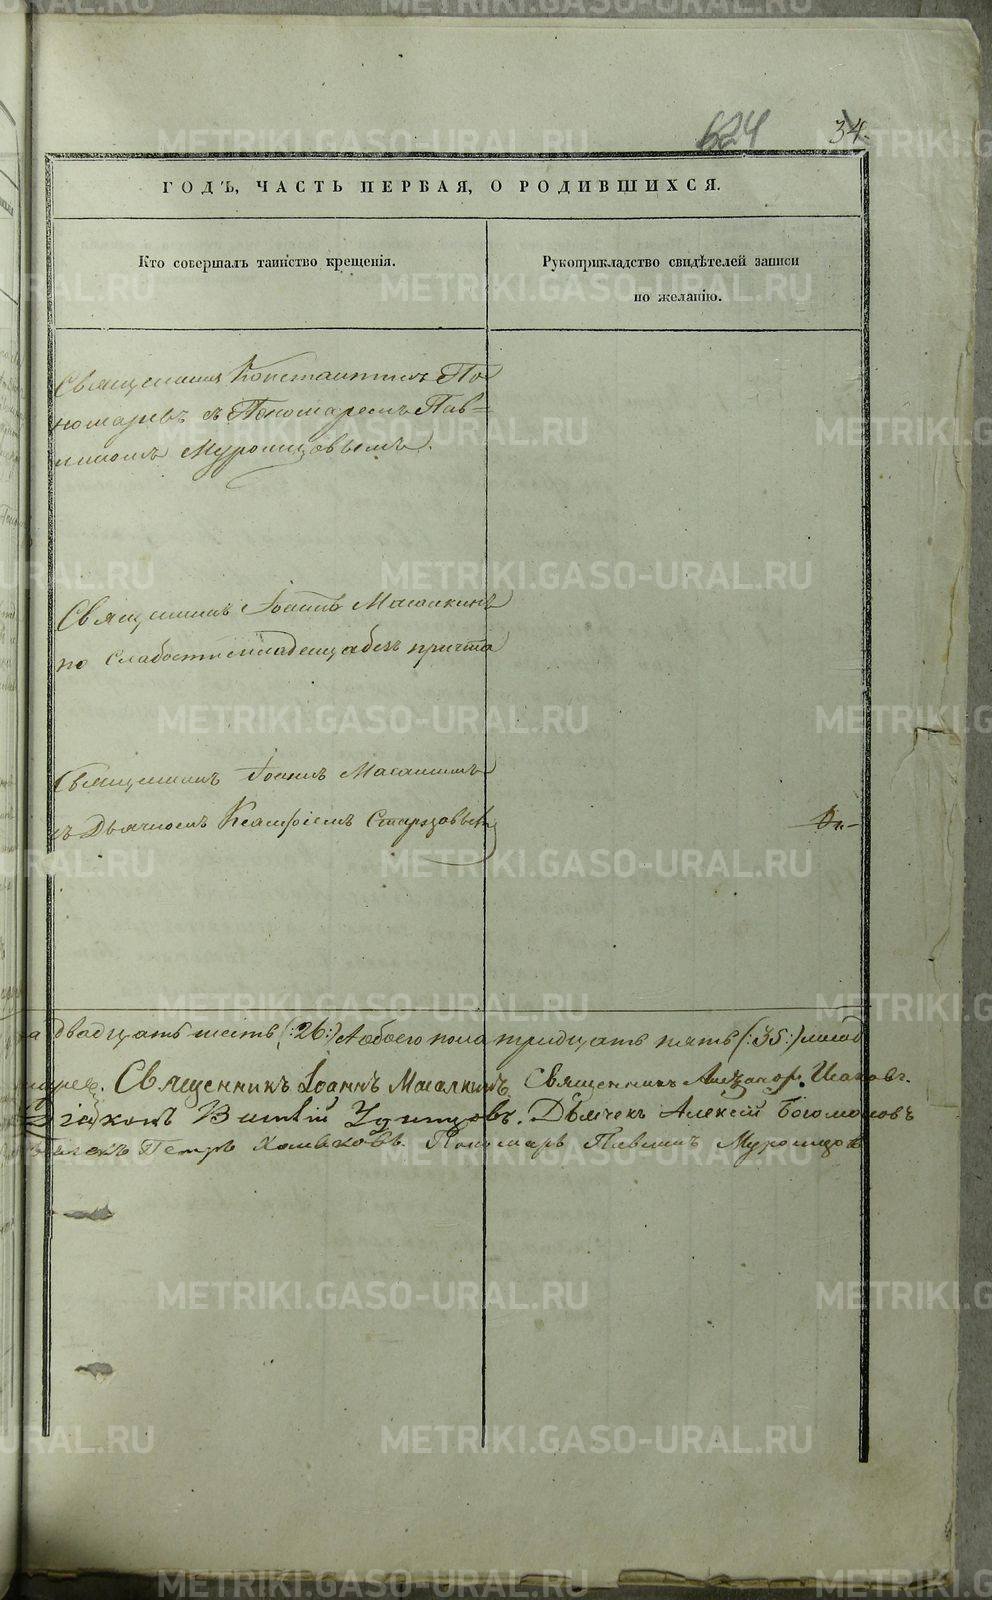 624 34.
ГОДЪ, ЧАСТЬ ПЕРВАЯ, О РОДИВШИХСЯ.
Кто совершалъ таинство крещенія.
Рукоприкладство свидѣтелей записи
по желанію.
Священникъ Константинъ По
номаревъ съ Пономаремъ Пав-
линомъ Муромцовымъ.
Священникъ Іоаннъ Масалкинъ
по слабости младенца безъ причта
Священникъ Іоаннъ Масалкинъ
съ Дьячкомъ
двадцать шесть (:26:) А обоего пола тридцать пять (:35:)
Священникъ Іоаннъ Масалкинъ Священникъ Исаковъ.
Діаконъ Удинцовъ. Дьячекъ Алексій Богомоловъ
Петръ Хомяковъ. Пономарь Павлинъ Муромцовъ
METRIKI.GASO-URAL.RU